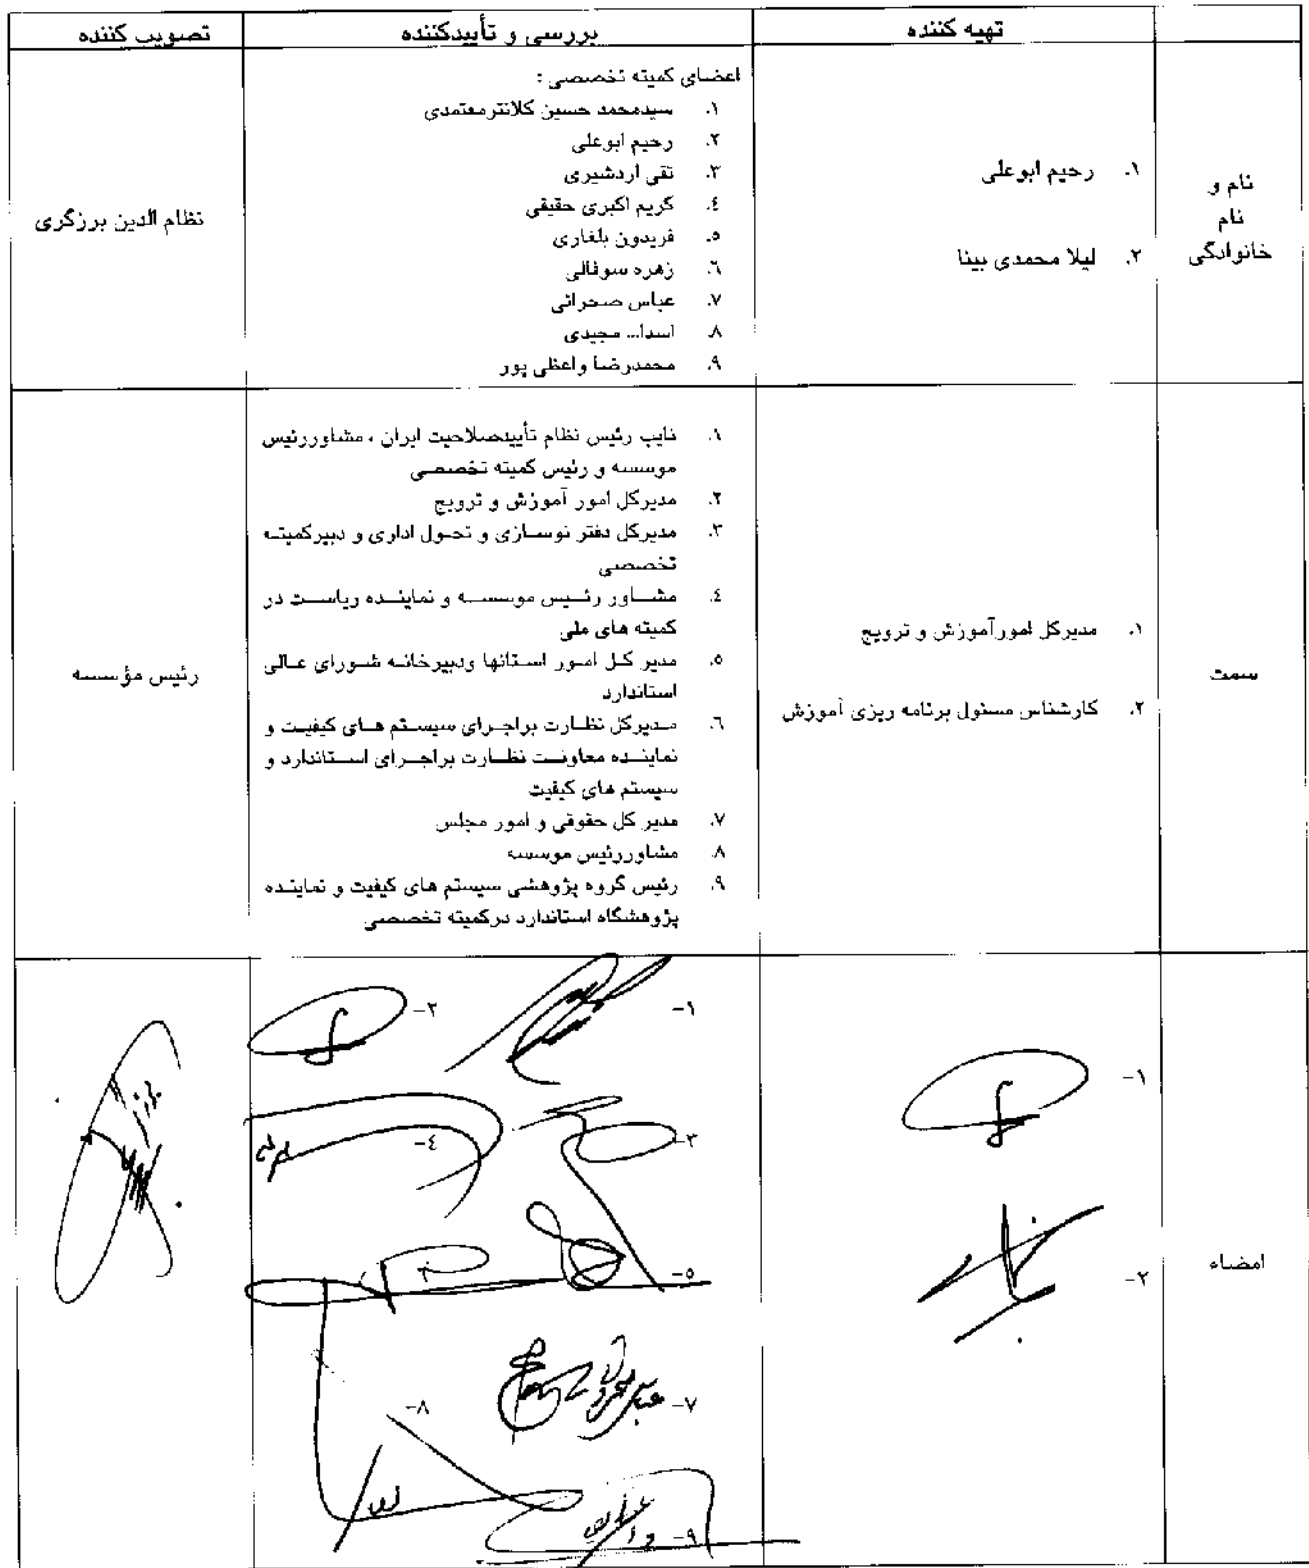 تهیه کننده
بررسی و تأییدکننده
تصویب کننده
نام و
نام
خانوادگی
۱. رحیم ابوعلی
۲. لیلا محمدی بینا
اعضای کمیته تخصصی :
۱. سیدمحمد حسین کلانترمعتمدی
۲. رحیم ابوعلی
۳. تقی اردشیری
۴. کریم اکبری حقیقی
۵. فریدون بلغاری
۶. زهره سوفالی
۷. عباس صحرائی
۸. اسدا... مجیدی
۹. محمدرضا واعظی پور
نظام الدین برزگری
سمت
۱. مدیرکل امورآموزش و ترویج
۲. کارشناس مسئول برنامه ریزی آموزش
۱. نایب رئیس نظام تأییدصلاحیت ایران ، مشاوررئیس
موسسه و رئیس کمیته تخصصی
۲. مدیرکل امور آموزش و ترویج
۳. مدیرکل دفتر نوسازی و تحول اداری و دبیرکمیته
تخصصی
۴. مشاور رئیس موسسه و نماینده ریاست در
کمیته های ملی
۵. مدیر کل امور استانها ودبیرخانه شورای عالی
استاندارد
۶. مدیرکل نظارت براجرای سیستم های کیفیت و
نماینده معاونت نظارت براجرای استاندارد و
سیستم های کیفیت
۷. مدیر کل حقوقی و امور مجلس
۸. مشاوررئیس موسسه
۹. رئیس گروه پژوهشی سیستم های کیفیت و نماینده
پژوهشگاه استاندارد درکمیته تخصصی
رئیس مؤسسه
امضاء
۱-
۲-
۱-
۲-
۳-
۴-
۵-
۷-
۸-
۹-